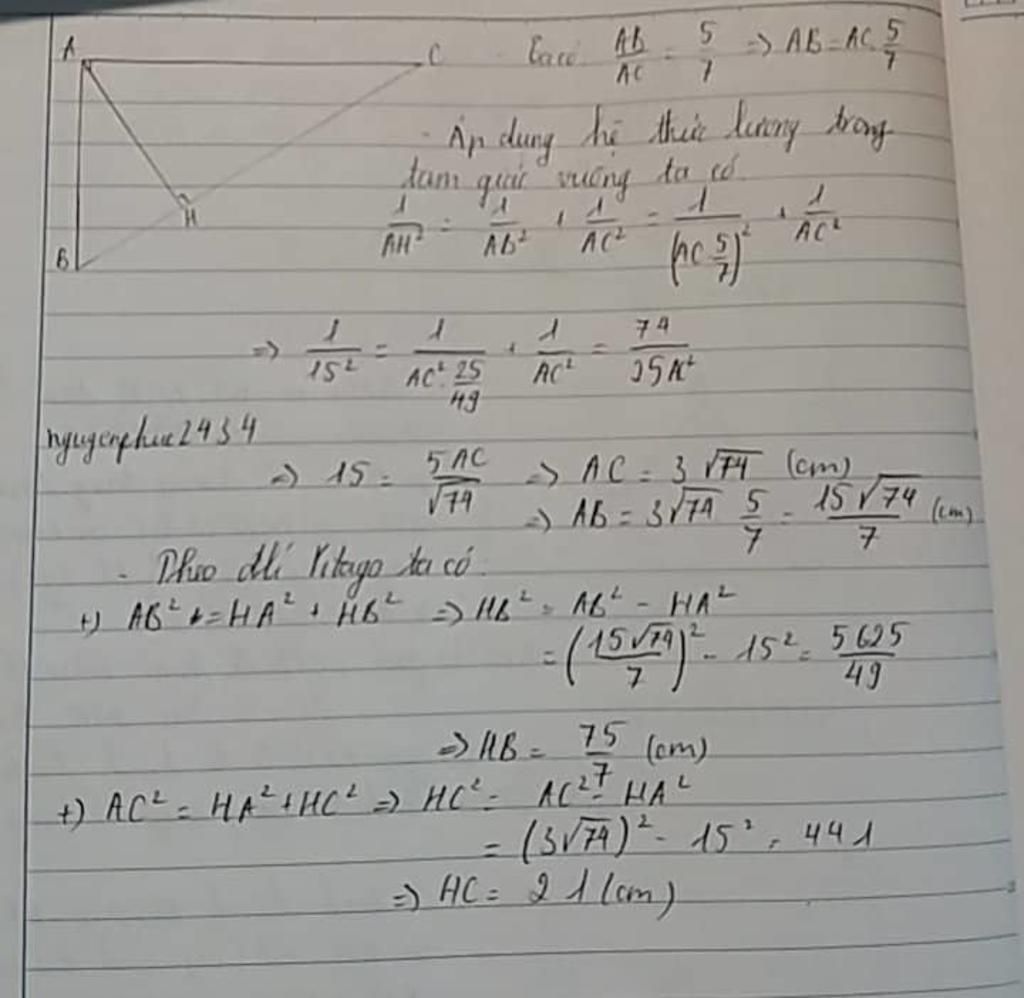 A
C
B
H
- Ta có AB/AC = 5/7 => AB = AC 5/7
- Áp dụng hệ thức lượng trong
tam giác vuông ta có
1/AH² = 1/AB² + 1/AC² = 1/(AC 5/7)² + 1/AC²
=> 1/15² = 1/(AC². 25/49) + 1/AC² = 74/25AC²
nguyenphuc2434
=> 15 = 5AC/√74 => AC = 3√74 (cm)
=> AB = 3√74 5/7 = 15√74/7 (cm)
- Theo đlí Pitago ta có
+) AB² = HA² + HB² => HB² = AB² - HA²
= (15√74/7)² - 15² = 5625/49
=> HB = 75/7 (cm)
+) AC² = HA² + HC² => HC² = AC² - HA²
= (3√74)² - 15² = 441
=> HC = 21 (cm)